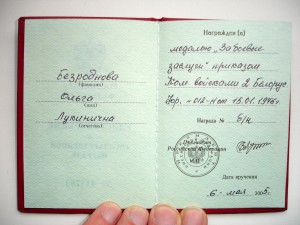 Безродкова
(фамилия)
Ольга
(имя)
Лукинична
(отчество)
Награжден (а)
медалью „За боевые
заслуги“ приказом
Ком. войсками 2 Белорус.
Награда № б/н
Президент
Российской Федерации
М.П.
Дата вручения
6 мая